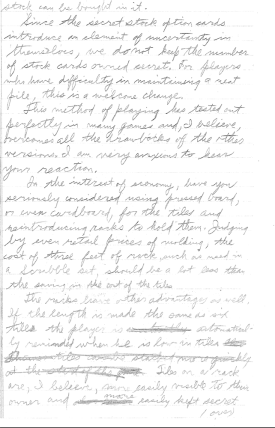 stock can be bought in it.
Since the secret stock option cards
introduce an element of uncertainty in
themselves, we do not keep the number
of stock cards owned secret. For players
who have difficulty in maintaining a neat
pile, this is a welcome change.
This method of playing has tested out
perfectly in many games and, I believe,
overcomes all the drawbacks of the other
versions. I am very anxious to hear
your reaction.
In the interest of economy, have you
seriously considered using pressed board,
or even cardboard, for the tiles and
reintroducing racks to hold them. Judging
by even retail prices of molding, the
cost of three feet of rack, such as used in
a Scrabble set, should be a lot less than
the saving in the cost of the tiles.
The racks have other advantages as well.
If the length is made the same as six
tiles the player is automatical-
ly reminded when he is low in tiles
tiles could be started more quickly
at the start of the Tiles on a rack
are, I believe, more easily visible to their
owner and more easily kept secret
(over)